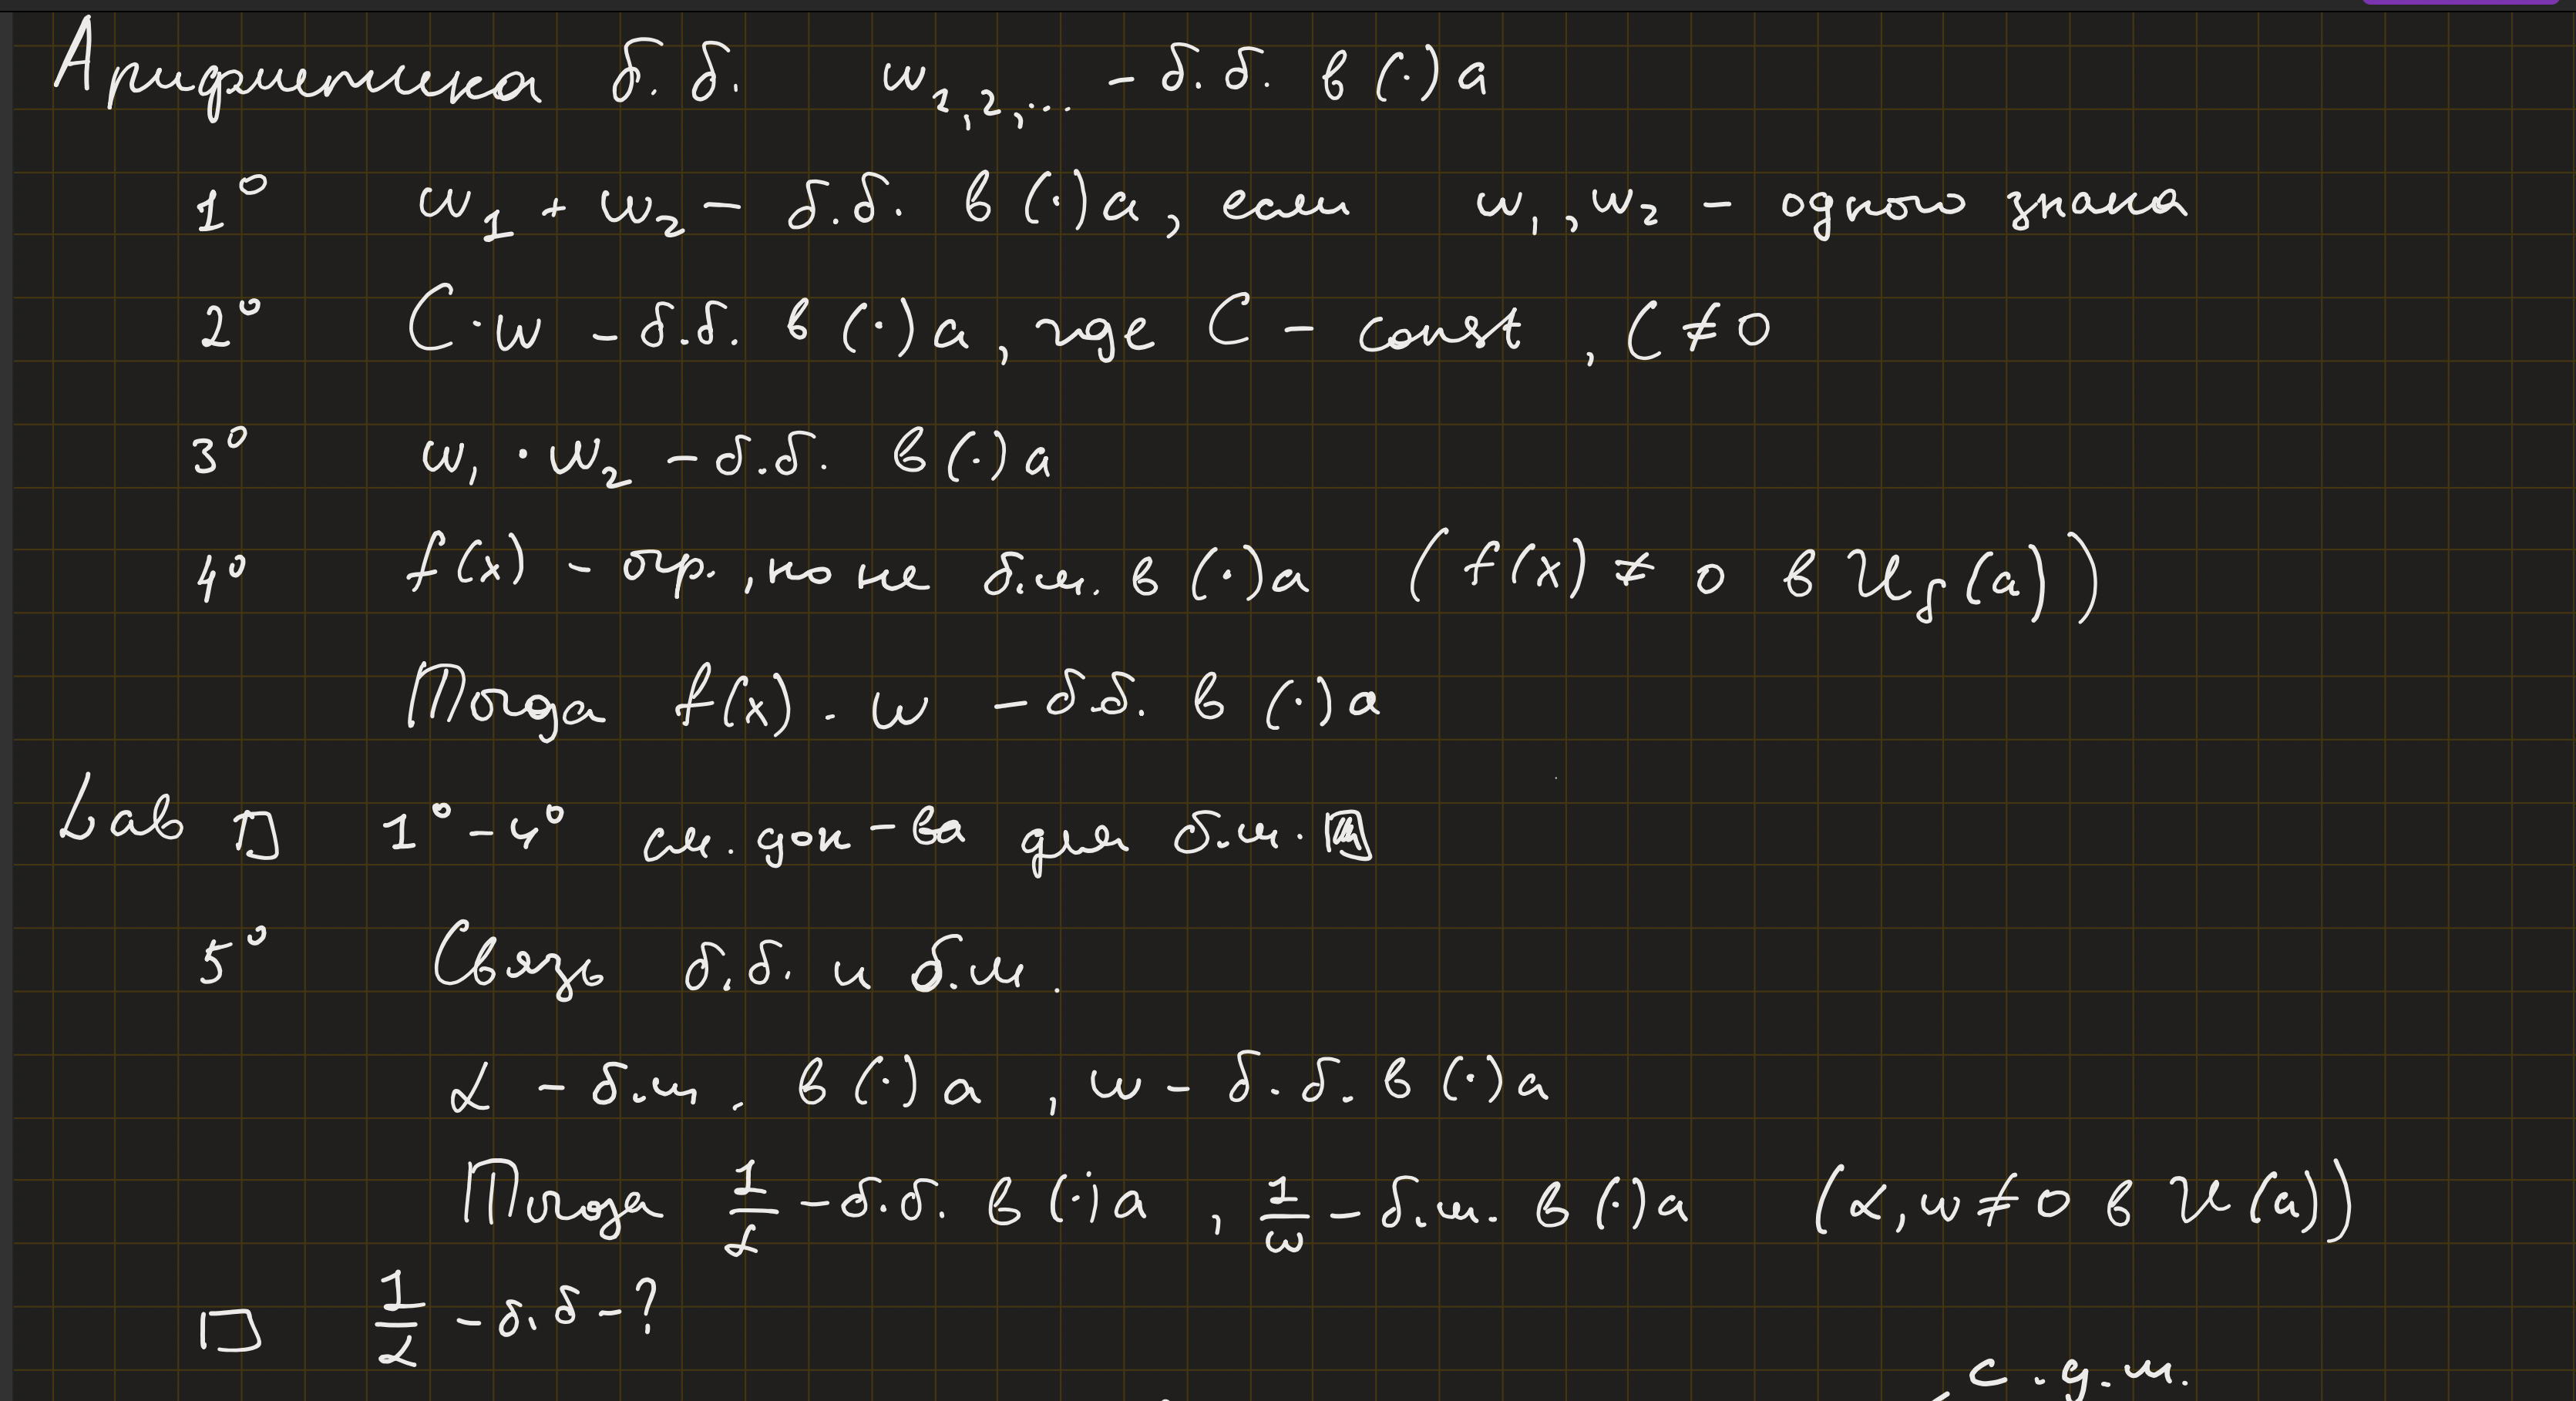 Арифметика б.б. w₁,₂,... - б.б. в (·) a
1° w₁ + w₂ - б.б. в (·) a, если w₁, w₂ - одного знака
2° C·w - б.б. в (·) a, где C - const, C ≠ 0
3° w₁ · w₂ - б.б. в (·) a
4° f(x) - огр., но не б.м. в (·) a (f(x) ≠ 0 в U_δ(a))
Тогда f(x) · w - б.б. в (·) a
Lab □ 1° - 4° см. док-ва для б.м.
5° Связь б.б. и б.м.
α - б.м. в (·) a, w - б.б. в (·) a
Тогда 1/α - б.б. в (·) a, 1/ω - б.м. в (·) a (α, w ≠ 0 в U(a))
□ 1/α - б.б - ?
с.д.м.